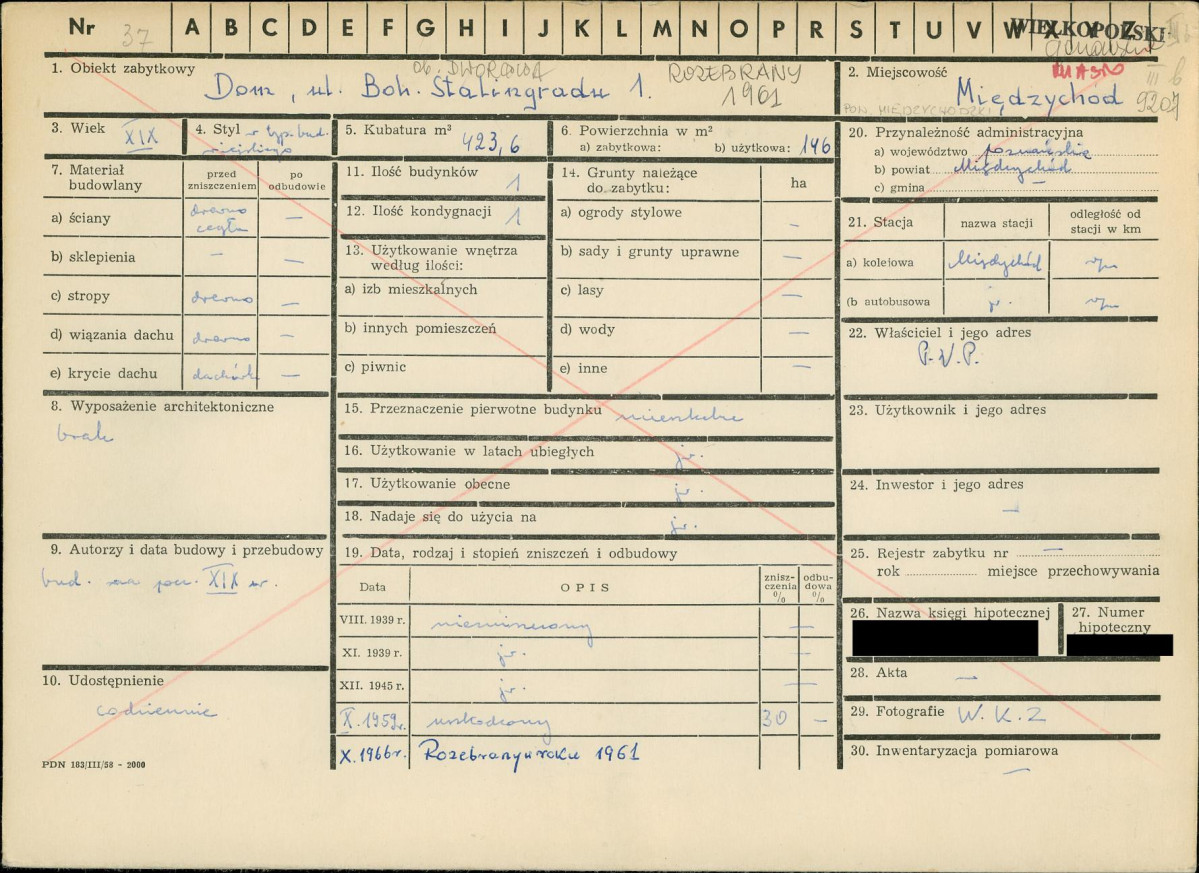 Nr 37 A B C D E F G H I J K L M N O P R S T U V W X Y Z
WIELKOPOLSKI
1. Obiekt zabytkowy
ob. DWORCOWA
ROZEBRANY
1961
Dom, ul. Boh. Stalingradu 1.
2. Miejscowość
MIASTO
III b
POW. MIĘDZYCHODZKI
Międzychód
9207
3. Wiek XIX
4. Styl w typ. bud.
miejskiego
5. Kubatura m³
423,6
6. Powierzchnia w m²
a) zabytkowa: b) użytkowa: 146
20. Przynależność administracyjna
a) województwo poznańskie
b) powiat Międzychód
c) gmina —
7. Materiał budowlany
przed zniszczeniem
po odbudowie
a) ściany drewno cegła —
b) sklepienia — —
c) stropy drewno —
d) wiązania dachu drewno —
e) krycie dachu dachówk —
11. Ilość budynków 1
12. Ilość kondygnacji 1
13. Użytkowanie wnętrza
według ilości:
a) izb mieszkalnych
b) innych pomieszczeń
c) piwnic
14. Grunty należące
do zabytku: ha
a) ogrody stylowe —
b) sady i grunty uprawne —
c) lasy —
d) wody —
e) inne —
21. Stacja nazwa stacji odległość od stacji w km
a) kolejowa Międzychód
(b autobusowa jw.
22. Właściciel i jego adres
8. Wyposażenie architektoniczne
brak
15. Przeznaczenie pierwotne budynku mieszkalne
16. Użytkowanie w latach ubiegłych jw.
17. Użytkowanie obecne jw.
18. Nadaje się do użycia na jw.
23. Użytkownik i jego adres
24. Inwestor i jego adres
—
9. Autorzy i data budowy i przebudowy
bud. na pocz. XIX w.
19. Data, rodzaj i stopień zniszczeń i odbudowy
Data OPIS zniszczenia % odbudowa %
VIII. 1939 r. niezniszczony —
XI. 1939 r. jw. —
XII. 1945 r. jw. —
X. 1959 r. uszkodzony 30 —
X. 1966 r. Rozebrany w roku 1961
25. Rejestr zabytku nr —
rok miejsce przechowywania
26. Nazwa księgi hipotecznej
27. Numer hipoteczny
28. Akta —
29. Fotografie W. K. Z
30. Inwentaryzacja pomiarowa
—
10. Udostępnienie
codziennie
PDN 183/III/58 - 2000